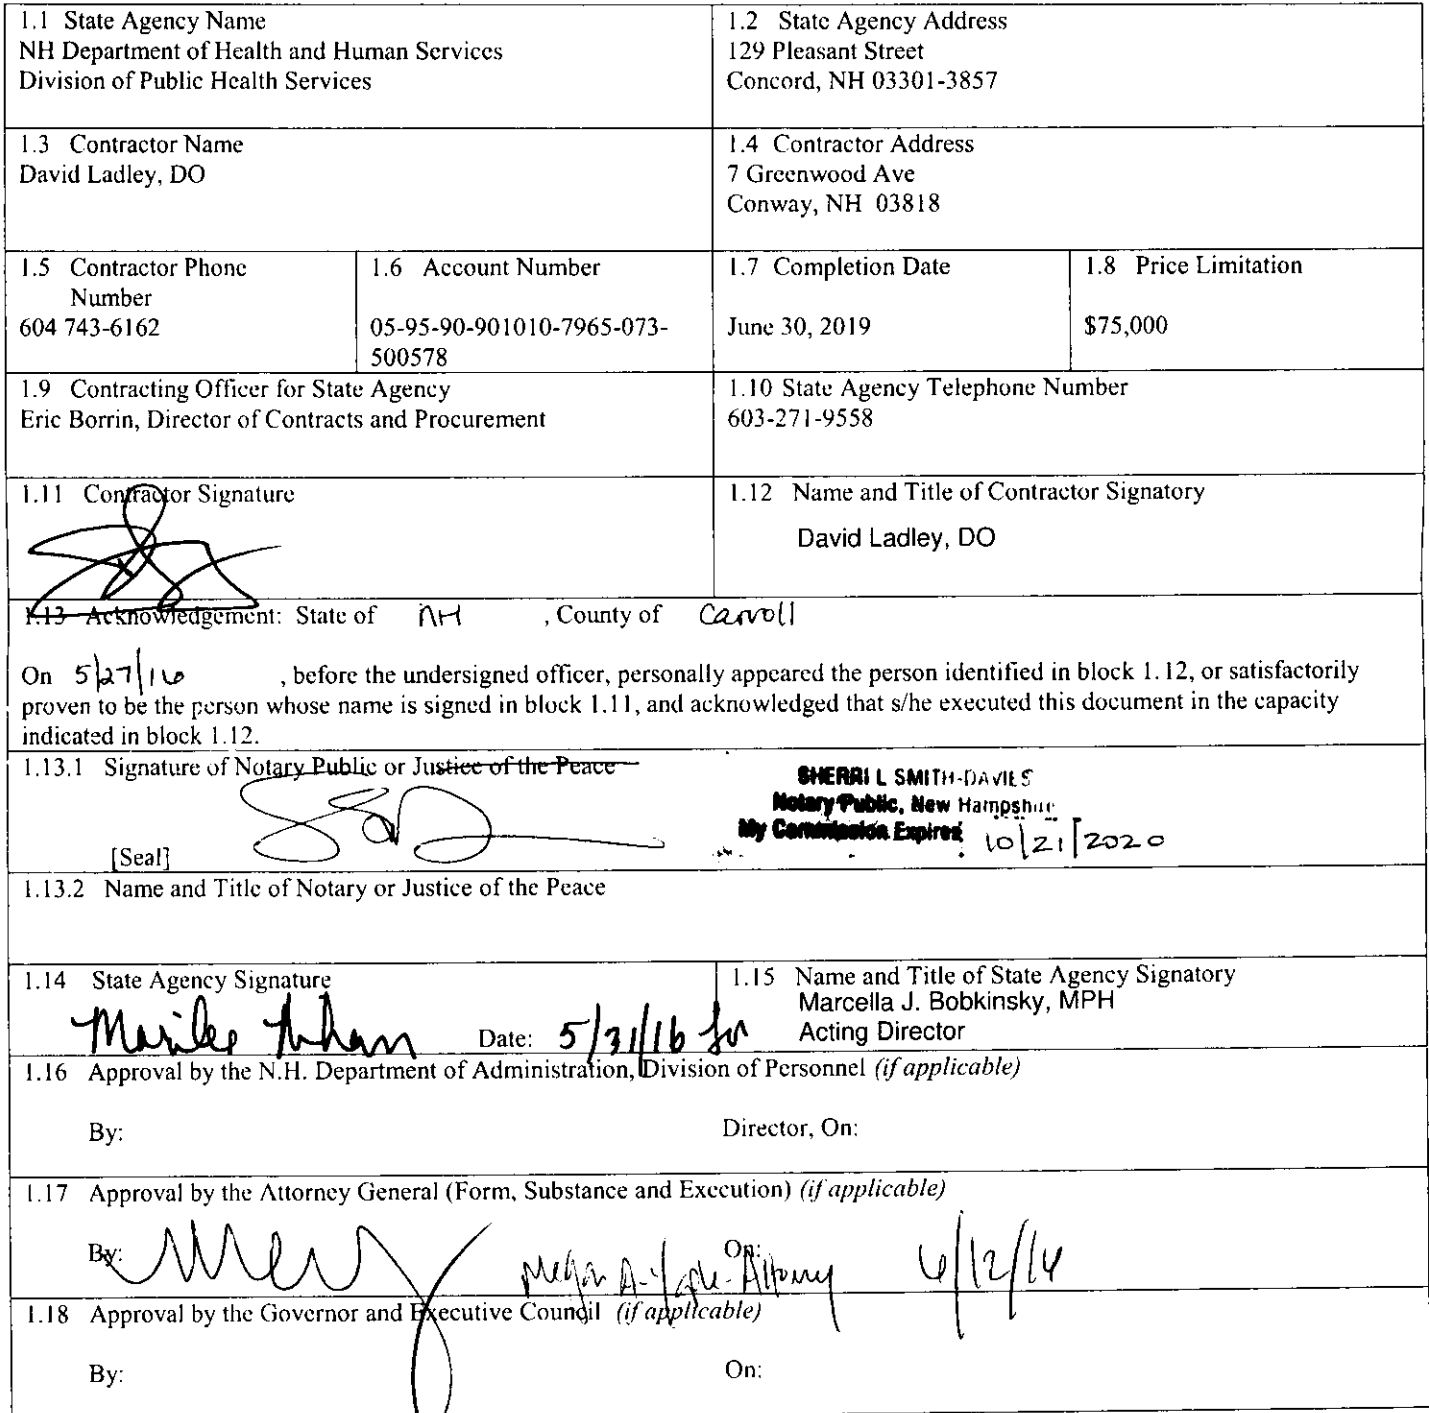 1.1 State Agency Name
NH Department of Health and Human Services
Division of Public Health Services
1.2 State Agency Address
129 Pleasant Street
Concord, NH 03301-3857
1.3 Contractor Name
David Ladley, DO
1.4 Contractor Address
7 Greenwood Ave
Conway, NH 03818
1.5 Contractor Phone
Number
604 743-6162
1.6 Account Number
05-95-90-901010-7965-073-
500578
1.7 Completion Date
June 30, 2019
1.8 Price Limitation
$75,000
1.9 Contracting Officer for State Agency
Eric Borrin, Director of Contracts and Procurement
1.10 State Agency Telephone Number
603-271-9558
1.11 Contractor Signature
1.12 Name and Title of Contractor Signatory
David Ladley, DO
1.13 Acknowledgement: State of NH , County of Carroll
On 5/27/16 , before the undersigned officer, personally appeared the person identified in block 1.12, or satisfactorily
proven to be the person whose name is signed in block 1.11, and acknowledged that s/he executed this document in the capacity
indicated in block 1.12.
1.13.1 Signature of Notary Public or Justice of the Peace
SHERRI L SMITH-DAVIES
Notary Public, New Hampshire
My Commission Expires 10/21/2020
[Seal]
1.13.2 Name and Title of Notary or Justice of the Peace
1.14 State Agency Signature
Date: 5/31/16 for
1.15 Name and Title of State Agency Signatory
Marcella J. Bobkinsky, MPH
Acting Director
1.16 Approval by the N.H. Department of Administration, Division of Personnel (if applicable)
By:
Director, On:
1.17 Approval by the Attorney General (Form, Substance and Execution) (if applicable)
By:
Megan A. - Attorney
On: 6/12/16
1.18 Approval by the Governor and Executive Council (if applicable)
By:
On: